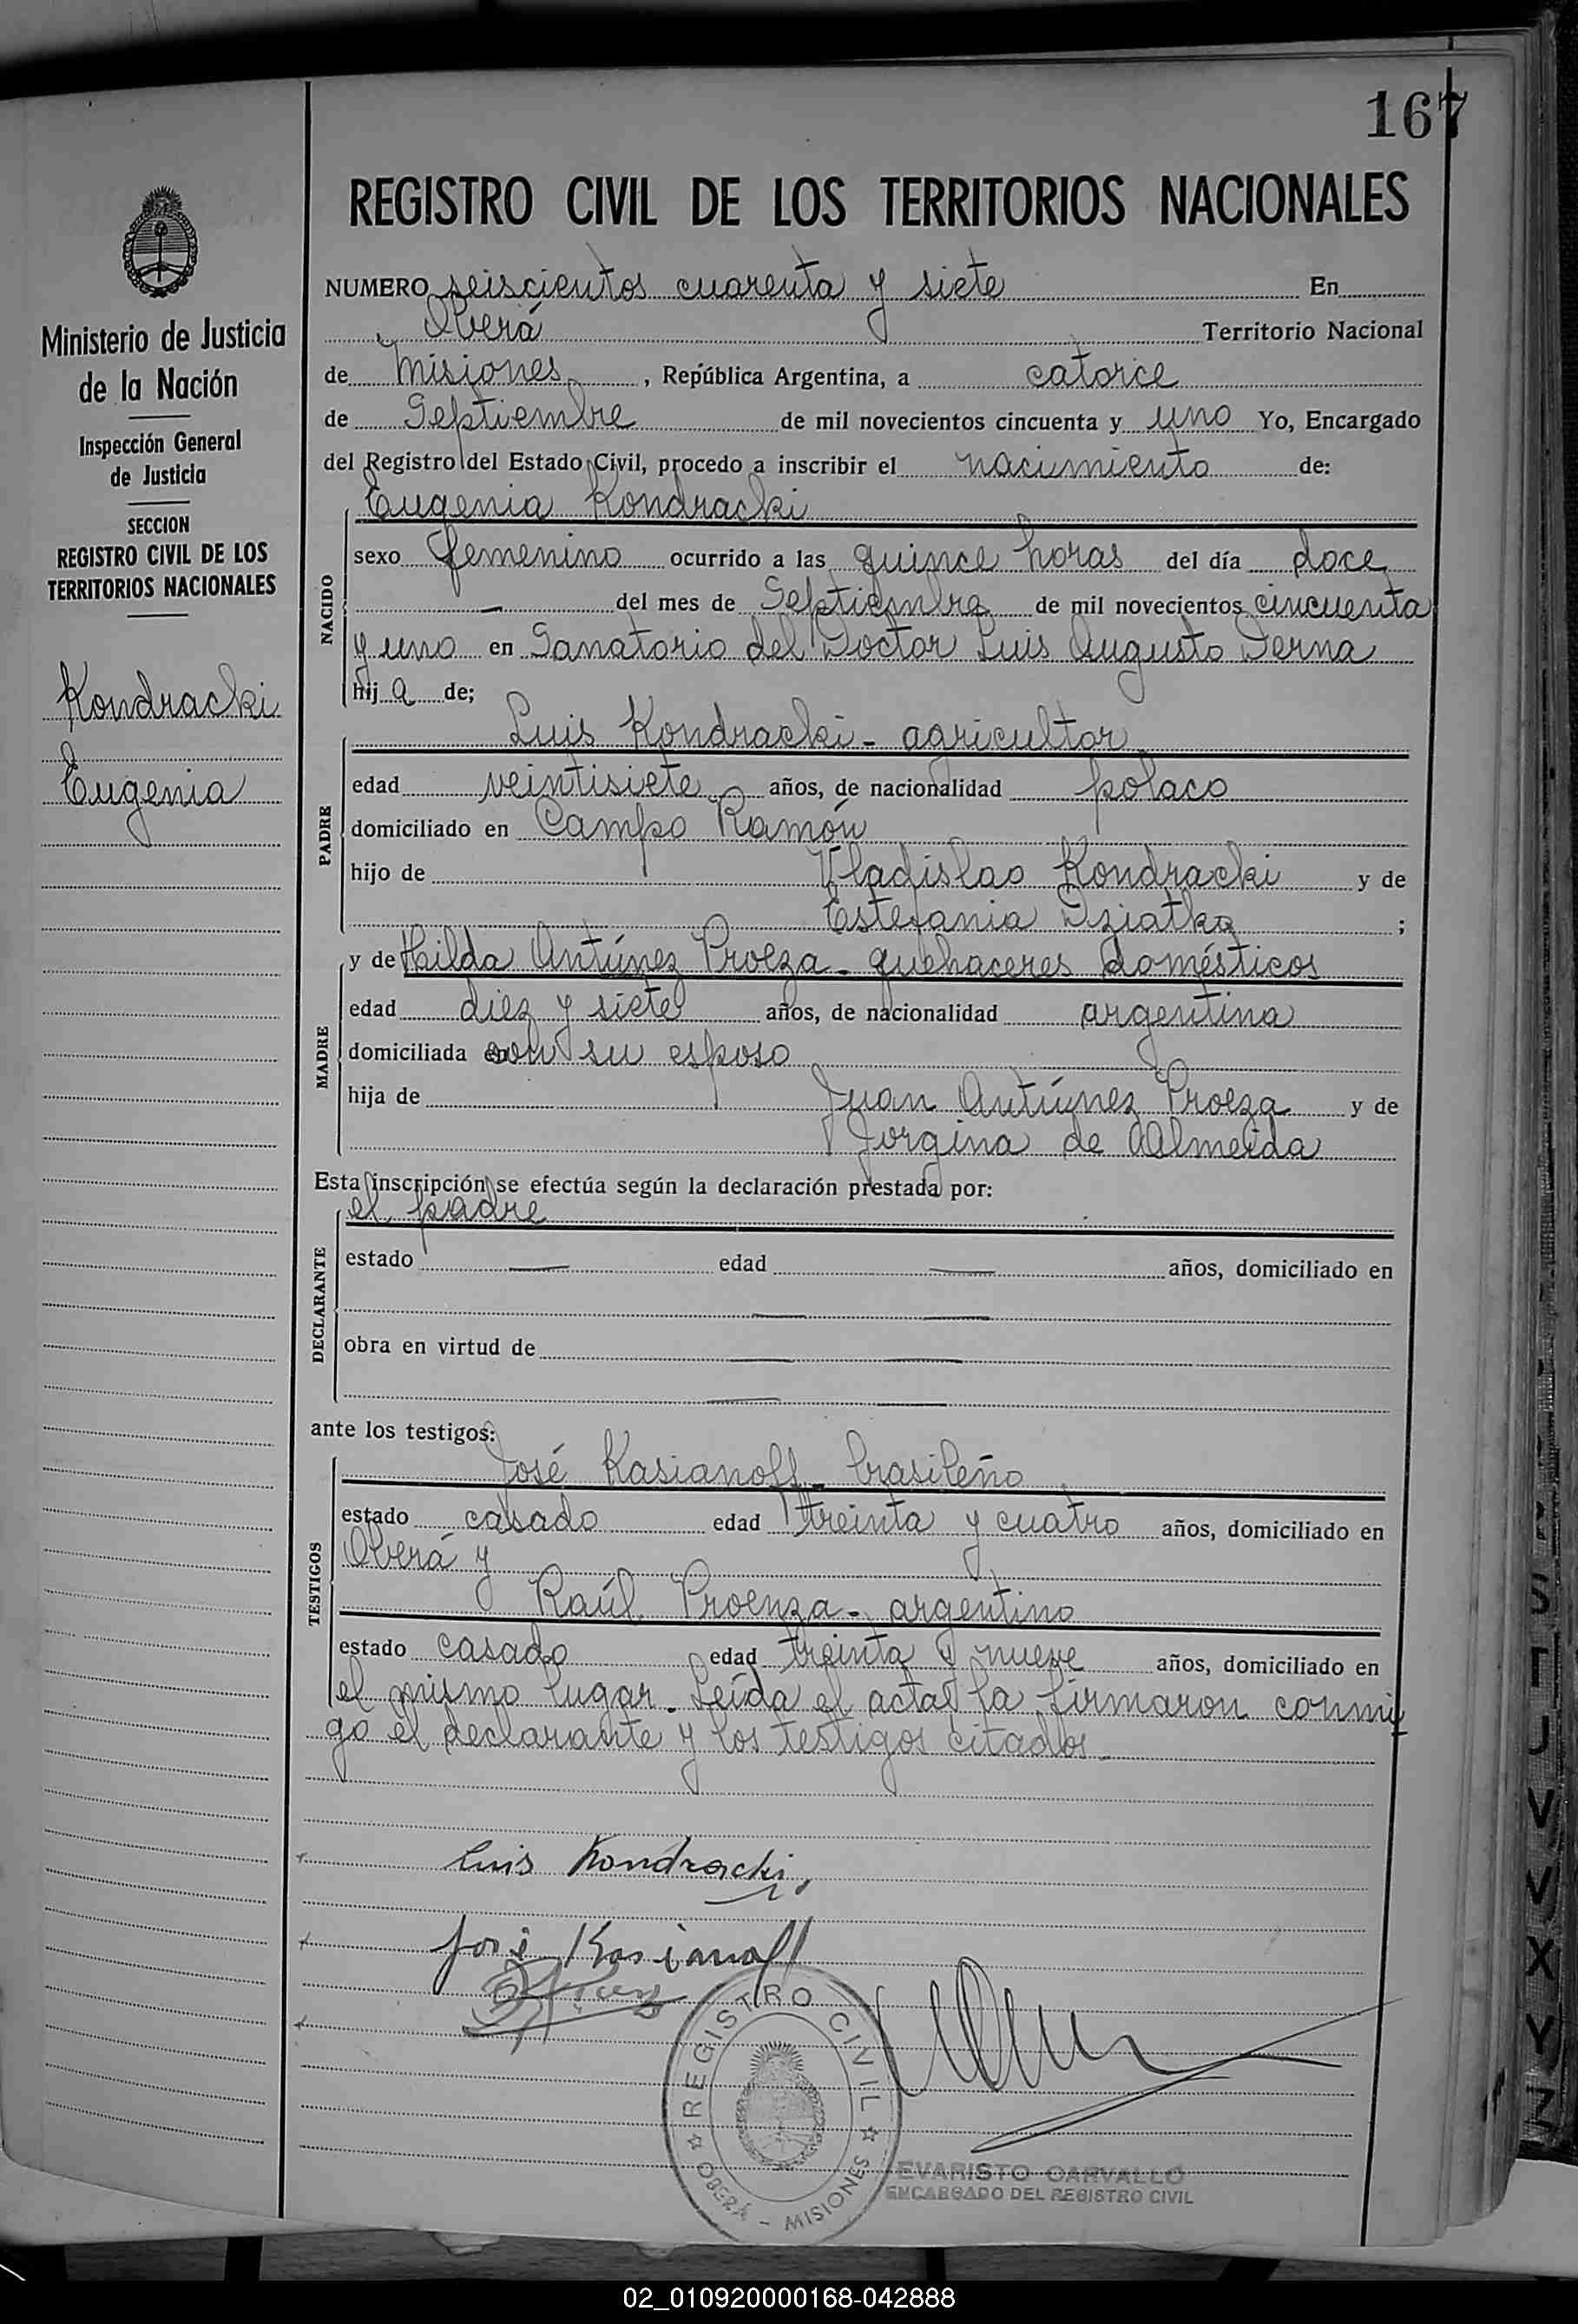 167
REGISTRO CIVIL DE LOS TERRITORIOS NACIONALES
Ministerio de Justicia
de la Nación
Inspección General
de Justicia
SECCION
REGISTRO CIVIL DE LOS
TERRITORIOS NACIONALES
Kondracki
Eugenia
NUMERO seiscientos cuarenta y siete En
Oberá Territorio Nacional
de Misiones, República Argentina, a catorce
de Septiembre de mil novecientos cincuenta y uno Yo, Encargado
del Registro del Estado Civil, procedo a inscribir el nacimiento de:
NACIDO
Eugenia Kondracki
sexo femenino ocurrido a las quince horas del día doce
— del mes de Septiembre de mil novecientos cincuenta
y uno en Sanatorio del Doctor Luis Augusto Derna
hija de;
PADRE
Luis Kondracki - agricultor
edad veintisiete años, de nacionalidad polaco
domiciliado en Campo Ramón
hijo de Vladislao Kondracki y de
Estefania Dziatko ;
MADRE
y de Hilda Antúnez Proeza - quehaceres domésticos
edad diez y siete años, de nacionalidad argentina
domiciliada con su esposo
hija de Juan Antúnez Proeza y de
Jorgina de Almeida
Esta inscripción se efectúa según la declaración prestada por:
DECLARANTE
el padre
estado — edad — años, domiciliado en
— —
obra en virtud de — —
— —
ante los testigos:
TESTIGOS
José Kasianoff - brasileño
estado casado edad treinta y cuatro años, domiciliado en
Oberá y
Raúl Proenza - argentino
estado casado edad treinta y nueve años, domiciliado en
el mismo lugar. Leída el acta la firmaron conmi
go el declarante y los testigos citados.
Luis Kondracki
José Kasianoff
REGISTRO CIVIL
OBERÁ - MISIONES
EVARISTO CARVALLO
ENCARGADO DEL REGISTRO CIVIL
S
T
J
V
V
X
Y
Z
02_010920000168-042888